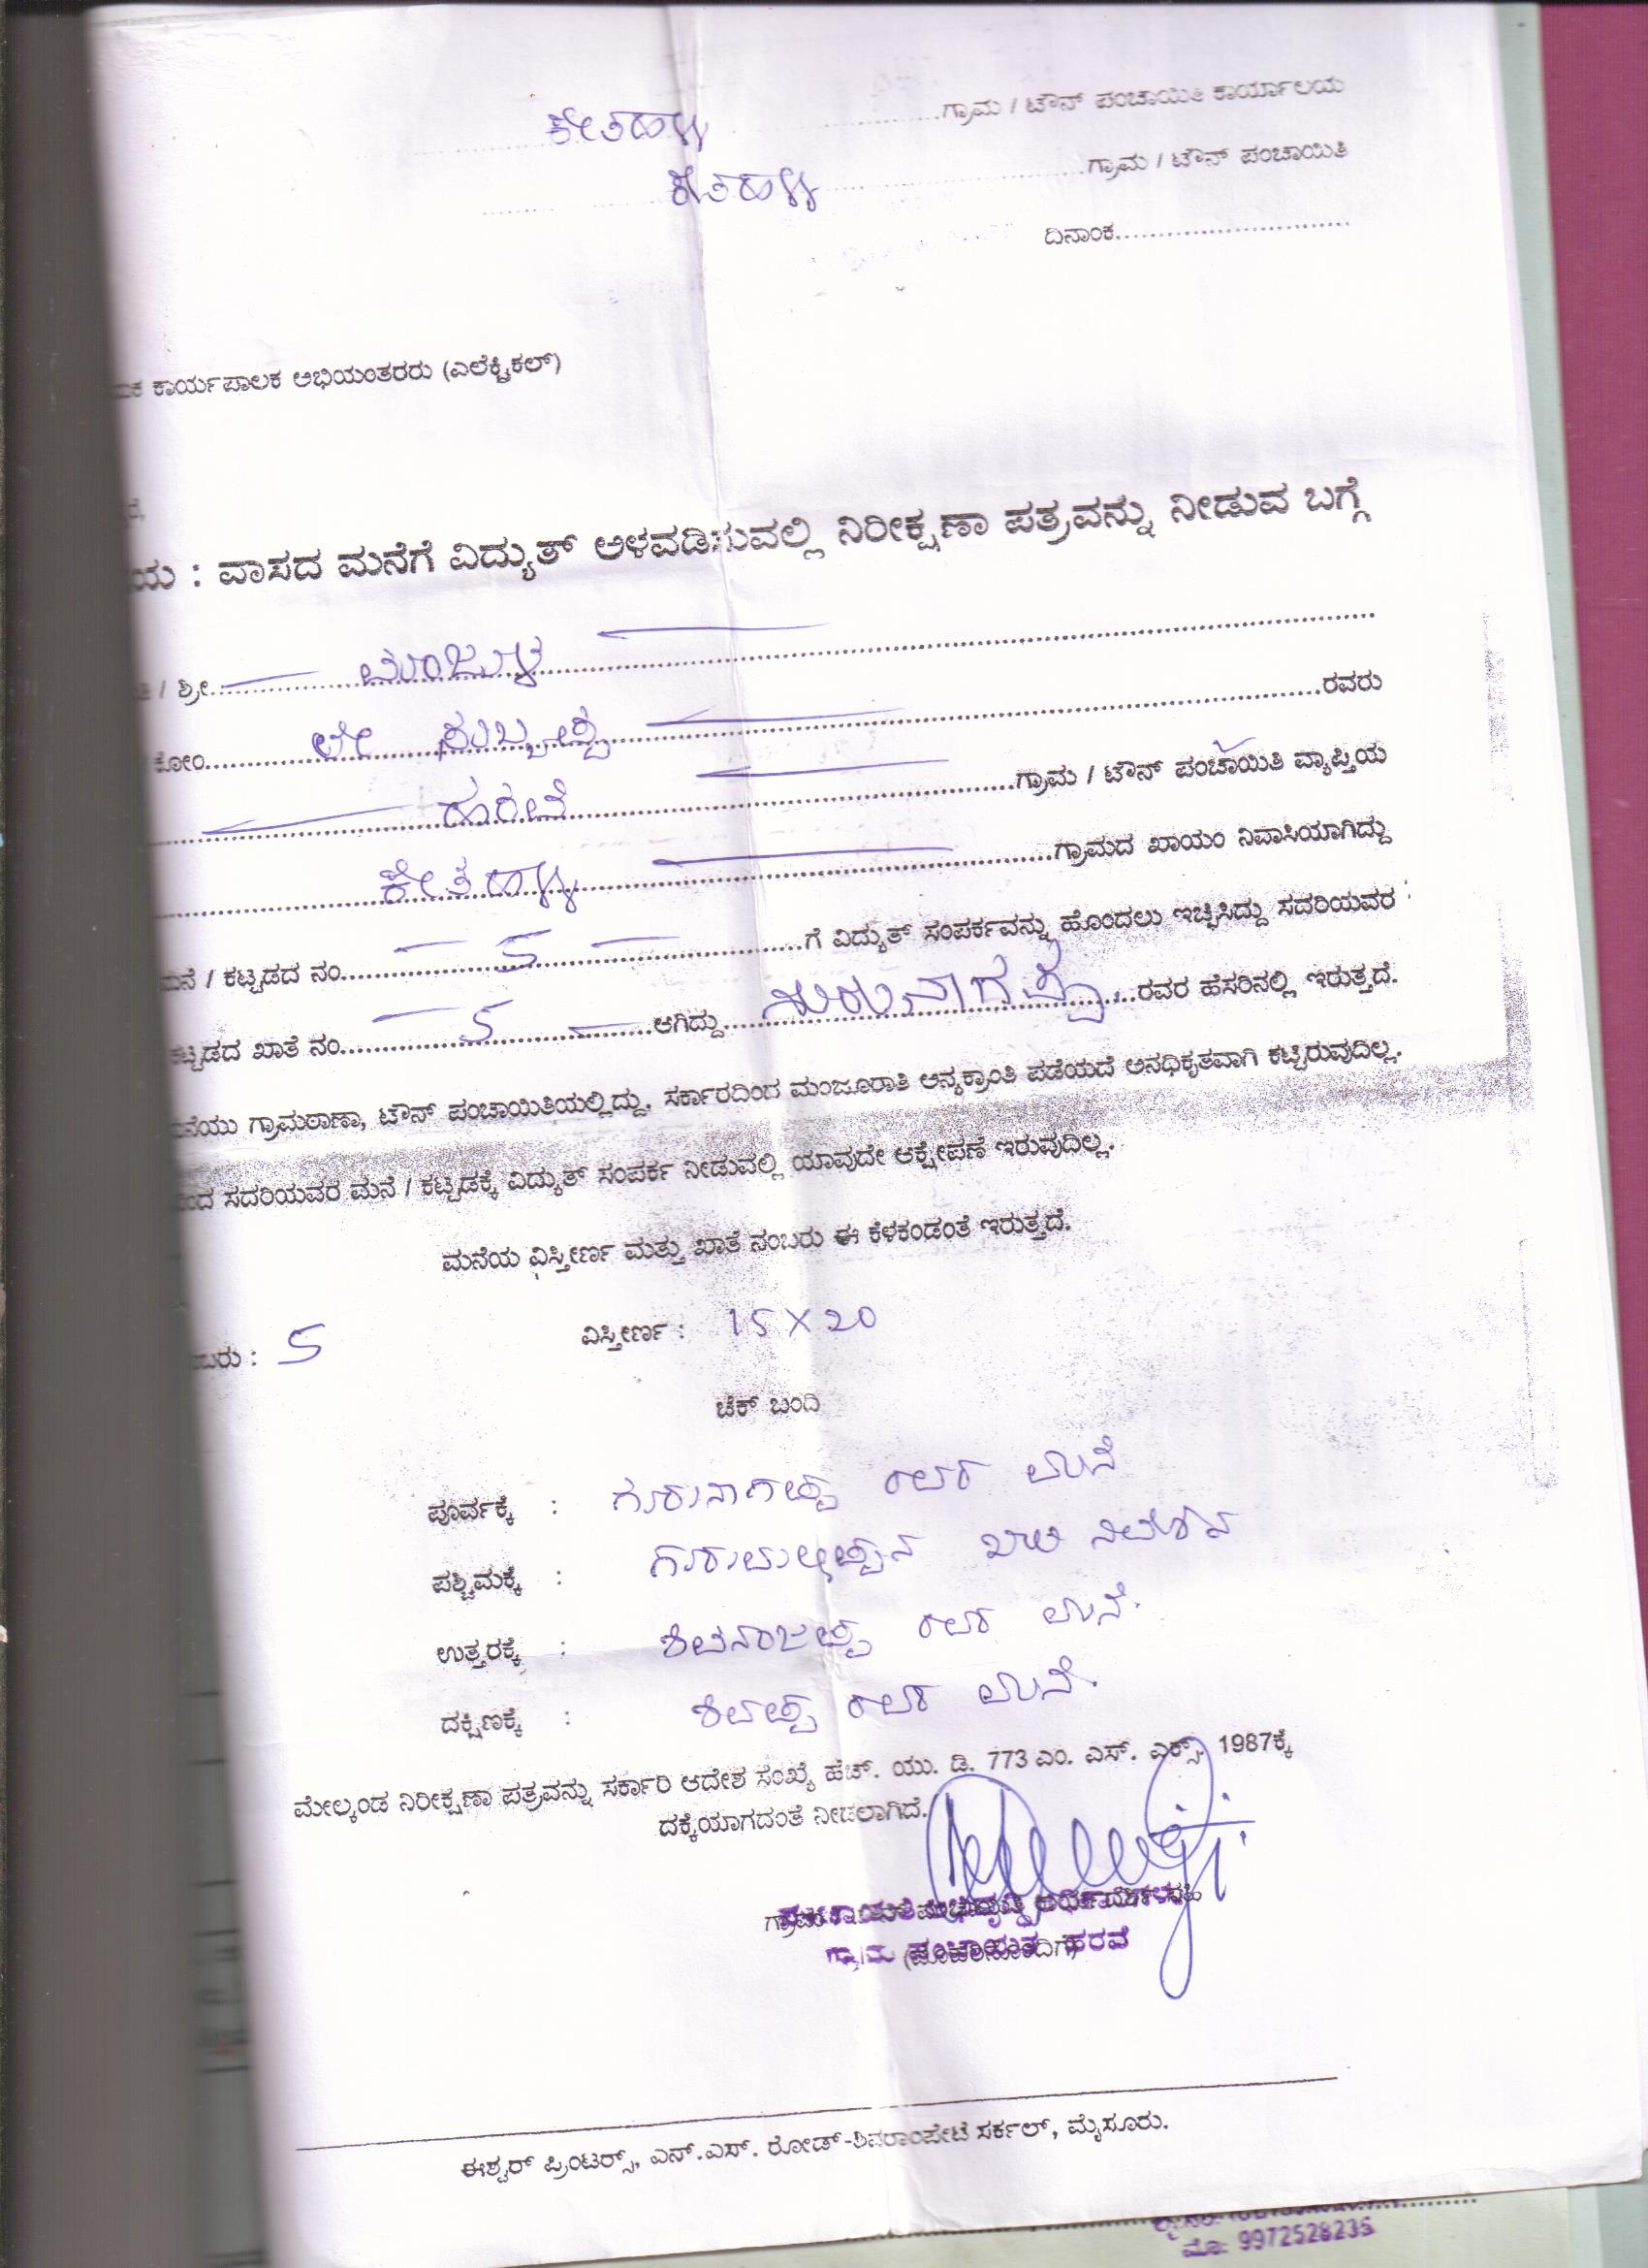 ಕೇತಹಳ್ಳಿ ....................ಗ್ರಾಮ / ಟೌನ್ ಪಂಚಾಯಿತಿ ಕಾರ್ಯಾಲಯ
ಕೇತಹಳ್ಳಿ ....................ಗ್ರಾಮ / ಟೌನ್ ಪಂಚಾಯಿತಿ
ದಿನಾಂಕ..............................
ಕಾರ್ಯಪಾಲಕ ಅಭಿಯಂತರರು (ಎಲೆಕ್ಟ್ರಿಕಲ್)
: ವಾಸದ ಮನೆಗೆ ವಿದ್ಯುತ್ ಅಳವಡಿಸುವಲ್ಲಿ ನಿರೀಕ್ಷಣಾ ಪತ್ರವನ್ನು ನೀಡುವ ಬಗ್ಗೆ
/ ಶ್ರೀ.......... ಮಂಜುಳ ..........
ಕೋಂ.......... ಲೇ ಸುಬ್ಬಪ್ಪ ..........ರವರು
ಹರವೆ ..........ಗ್ರಾಮ / ಟೌನ್ ಪಂಚಾಯಿತಿ ವ್ಯಾಪ್ತಿಯ
ಕೇತಹಳ್ಳಿ ..........ಗ್ರಾಮದ ಖಾಯಂ ನಿವಾಸಿಯಾಗಿದ್ದು
/ ಕಟ್ಟಡದ ನಂ.......... 5 ..........ಗೆ ವಿದ್ಯುತ್ ಸಂಪರ್ಕವನ್ನು ಹೊಂದಲು ಇಚ್ಛಿಸಿದ್ದು ಸದರಿಯವರ
ಕಟ್ಟಡದ ಖಾತೆ ನಂ.......... 5 ..........ಆಗಿದ್ದು.......... ಗುರುನಾಗಪ್ಪ ..........ರವರ ಹೆಸರಿನಲ್ಲಿ ಇರುತ್ತದೆ.
ಗ್ರಾಮಠಾಣಾ, ಟೌನ್ ಪಂಚಾಯಿತಿಯಲ್ಲಿದ್ದು, ಸರ್ಕಾರದಿಂದ ಮಂಜೂರಾತಿ ಅನ್ಯಕ್ರಾಂತಿ ಪಡೆಯದೆ ಅನಧಿಕೃತವಾಗಿ ಕಟ್ಟಿರುವುದಿಲ್ಲ.
ಸದರಿಯವರ ಮನೆ / ಕಟ್ಟಡಕ್ಕೆ ವಿದ್ಯುತ್ ಸಂಪರ್ಕ ನೀಡುವಲ್ಲಿ ಯಾವುದೇ ಆಕ್ಷೇಪಣೆ ಇರುವುದಿಲ್ಲ.
ಮನೆಯ ವಿಸ್ತೀರ್ಣ ಮತ್ತು ಖಾತೆ ನಂಬರು ಈ ಕೆಳಕಂಡಂತೆ ಇರುತ್ತದೆ.
: 5 ವಿಸ್ತೀರ್ಣ : 15 X 20
ಚೆಕ್ ಬಂದಿ
ಪೂರ್ವಕ್ಕೆ : ಗುರುನಾಗಪ್ಪ ರವರ ಮನೆ
ಪಶ್ಚಿಮಕ್ಕೆ : ಗುರುಮಲ್ಲಪ್ಪನ ಖಾಲಿ ನಿವೇಶನ
ಉತ್ತರಕ್ಕೆ : ಶಿವನಂಜಪ್ಪ ರವರ ಮನೆ.
ದಕ್ಷಿಣಕ್ಕೆ : ಶಿವಪ್ಪ ರವರ ಮನೆ.
ಮೇಲ್ಕಂಡ ನಿರೀಕ್ಷಣಾ ಪತ್ರವನ್ನು ಸರ್ಕಾರಿ ಆದೇಶ ಸಂಖ್ಯೆ ಹೆಚ್. ಯು. ಡಿ. 773 ಎಂ. ಎಸ್. ಎಕ್ಸ್. 1987ಕ್ಕೆ
ದಕ್ಕೆಯಾಗದಂತೆ ನೀಡಲಾಗಿದೆ.
ಗ್ರಾಮ ಪಂಚಾಯಿತಿ ಹರವೆ
ಈಶ್ವರ್ ಪ್ರಿಂಟರ್ಸ್, ಎನ್.ಎಸ್. ರೋಡ್-ಶಿವರಾಂಪೇಟೆ ಸರ್ಕಲ್, ಮೈಸೂರು.
ಮೊ: 9972528235